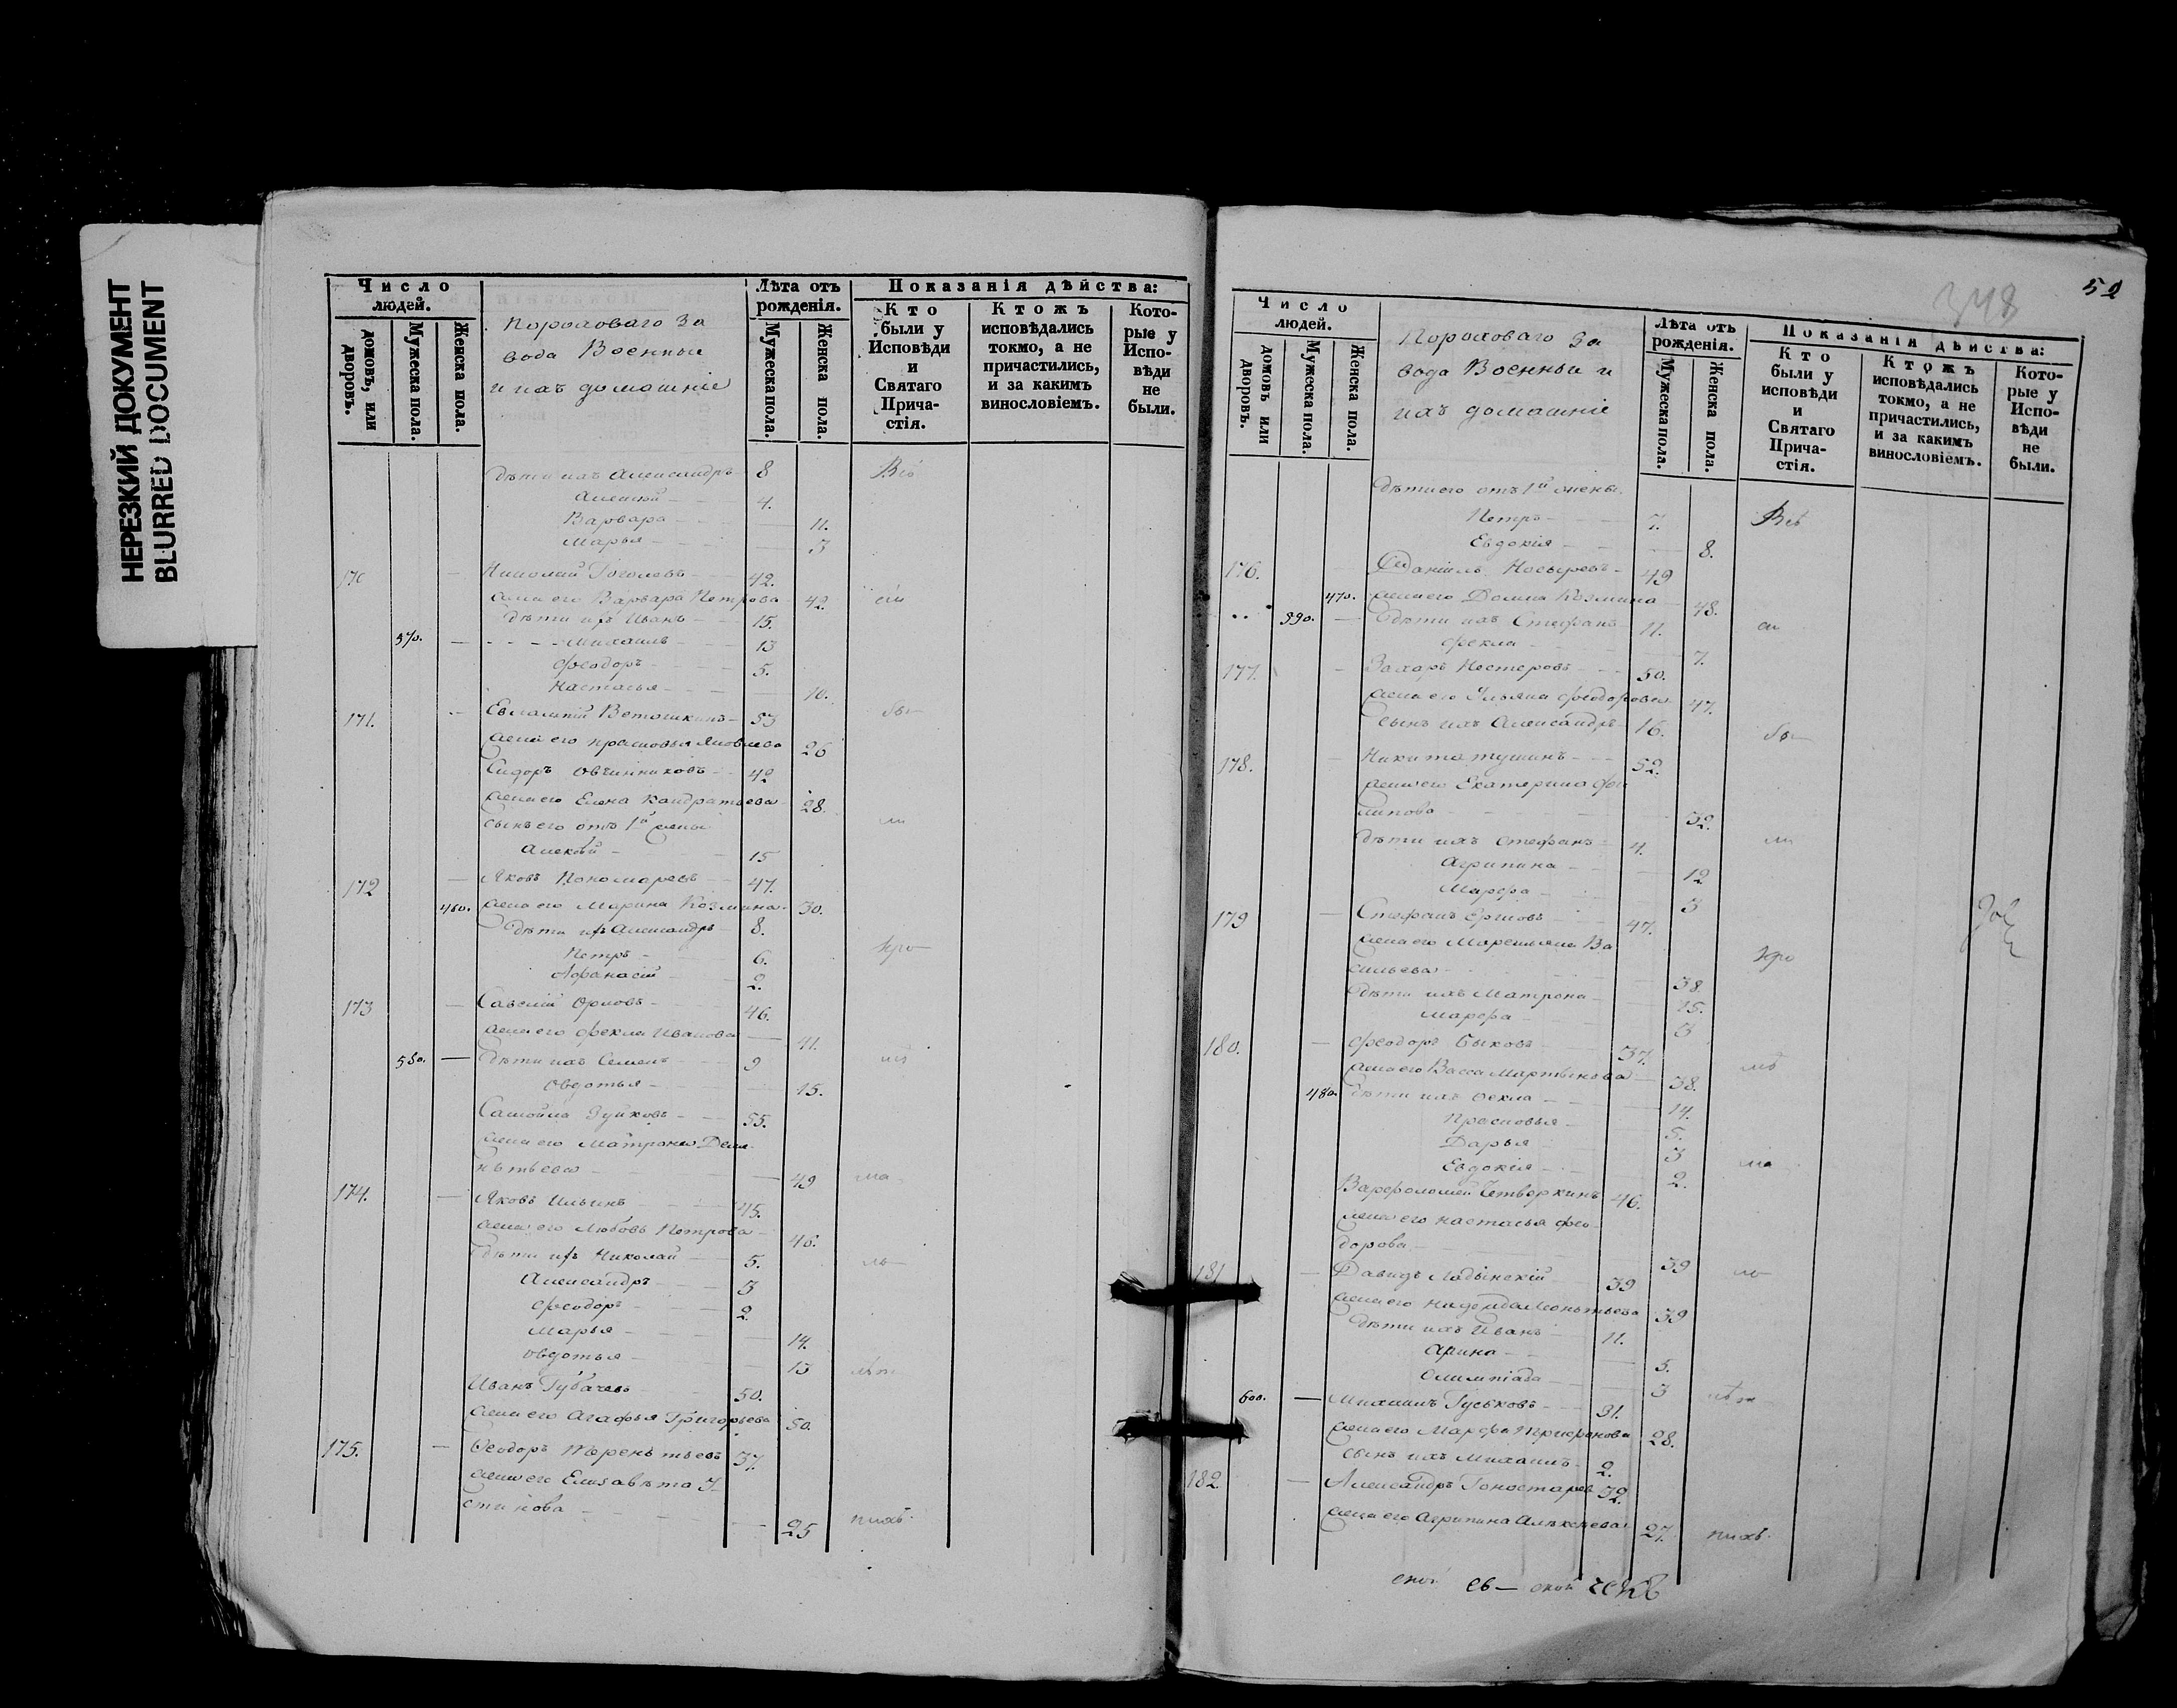 НЕРЕЗКИЙ ДОКУМЕНТ
BLURRED DOCUMENT
Число людей.
домовъ, или дворовъ.
Мужеска пола.
Женска пола.
Пороховаго За
вода Военныи
и ихъ домашніе
Лѣта отъ рожденія.
Мужеска пола.
Женска пола.
Показанія дѣйства:
Кто были у Исповѣди и Святаго Прича-стія.
Ктожъ исповѣдались токмо, а не причастились, и за какимъ винословіемъ.
Кото-рые у Испо-вѣди не были.
дѣти ихъ Александръ 8 Всѣ
Алексѣй 4.
Варвара 11.
Марья 3
170 Николай Гоголевъ 42.
жена его Варвара Петрова 42.
дѣти ихъ Иванъ 15.
570. Михаилъ 13
Феодоръ 5.
Настасья 10.
171. Евлампій Ветошкинъ 53
жена его Прасковья Яковлева 26
Сидоръ Овчинниковъ 42
жена его Елена Кондратьева 28.
сынъ его отъ 1й жены
Алексѣй 15
172 Яковъ Пономаревъ 47.
460. жена его Марина Козмина 30.
дѣти ихъ Александръ 8.
Петръ 6.
Афанасій 2.
173 Савелій Орловъ 46.
жена его Фекла Иванова 41.
580. дѣти ихъ Семенъ 9
Овдотья 15.
Самойла Зуйковъ 55.
жена его Матрона Деме
нтьева 49
174. Яковъ Ильинъ 45.
жена его Любовь Петрова 46.
дѣти ихъ Николай 5.
Александръ 3
Феодоръ 2.
Марья 14.
Овдотья 13
Иванъ Губачевъ 50.
жена его Агафья Григорьева 50.
175. Феодоръ Терентьевъ 37.
жена его Елизавѣта У
стинова 25
52
348
Число людей.
домовъ или дворовъ.
Мужеска пола.
Женска пола.
Пороховаго За
вода Военныи и
ихъ домашніе
Лѣта отъ рожденія.
Мужеска пола.
Женска пола.
Показанія дѣйства:
Кто были у исповѣди и Святаго Прича-стія.
Ктожъ исповѣдались токмо, а не причастились, и за какимъ винословіемъ.
Кото-рые у Испо-вѣди не были.
дѣти его отъ 1й жены
Петръ 7. Всѣ
Евдокія 8.
176. Даніилъ Носыревъ 49
470. жена его Домна Козмина 48.
590. дѣти ихъ Стефанъ 11.
Фекла 7.
177. Захаръ Нестеровъ 50.
жена его Ульяна Феодорова 47.
сынъ ихъ Александръ 16.
178. Никита Тушинъ 52.
жена его Екатерина Фи
липова 32.
дѣти ихъ Стефанъ 4.
Агрипина 12
Марфа 3
179 Стефанъ Ершовъ 47.
жена его Маремьяна Ва
сильева 38
дѣти ихъ Матрена 15.
Марфа 3
180. Феодоръ Быковъ 37.
жена его Васса Мартынова 38.
480. дѣти ихъ Фекла 14.
Прасковья 5.
Дарья 3
Евдокія 2.
Варфоломей Четверкинъ 46.
жена его Настасья Фео
дорова 39
181 Давидъ Ладынскій 39
жена его Надежда Леонтьева 39
дѣти ихъ Иванъ 11.
Арина 5.
Олимпіада 3
600. Михаилъ Гуськовъ 31.
жена его Марфа Трифонова 28.
сынъ ихъ Михаилъ 2.
182. Александръ Гоностарев 32.
жена его Агрипина Алексѣева 27.